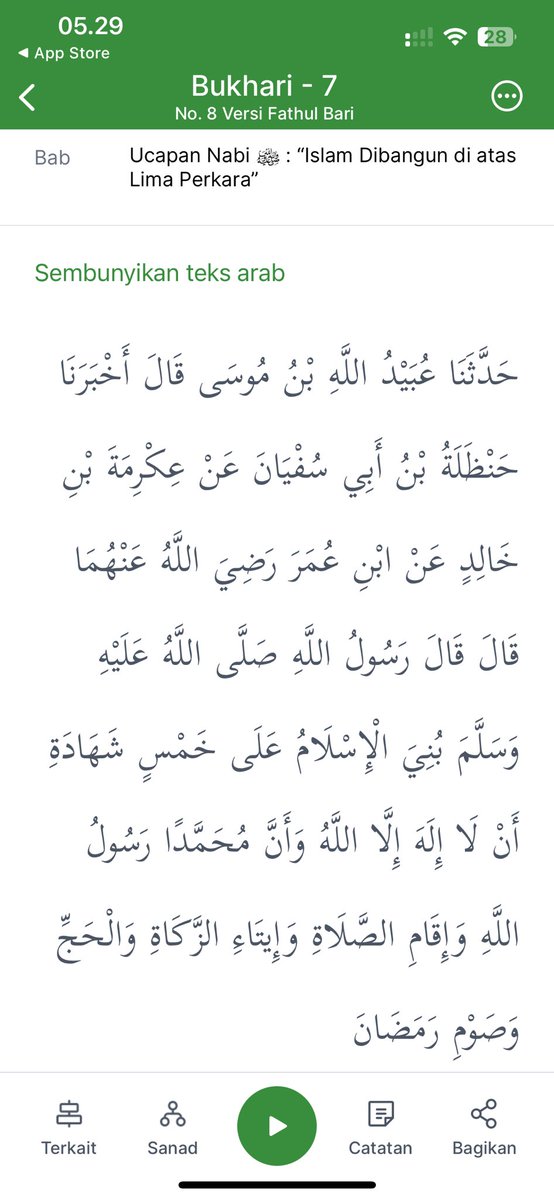 05.29
28
◀ App Store
Bukhari - 7
No. 8 Versi Fathul Bari
Bab
Ucapan Nabi ﷺ : “Islam Dibangun di atas
Lima Perkara”
Sembunyikan teks arab
حَدَّثَنَا عُبَيْدُ اللَّهِ بْنُ مُوسَى قَالَ أَخْبَرَنَا
حَنْظَلَةُ بْنُ أَبِي سُفْيَانَ عَنْ عِكْرِمَةَ بْنِ
خَالِدٍ عَنْ ابْنِ عُمَرَ رَضِيَ اللَّهُ عَنْهُمَا
قَالَ قَالَ رَسُولُ اللَّهِ صَلَّى اللَّهُ عَلَيْهِ
وَسَلَّمَ بُنِيَ الْإِسْلَامُ عَلَى خَمْسٍ شَهَادَةِ
أَنْ لَا إِلَهَ إِلَّا اللَّهُ وَأَنَّ مُحَمَّدًا رَسُولُ
اللَّهِ وَإِقَامِ الصَّلَاةِ وَإِيتَاءِ الزَّكَاةِ وَالْحَجِّ
وَصَوْمِ رَمَضَانَ
Terkait
Sanad
Catatan
Bagikan